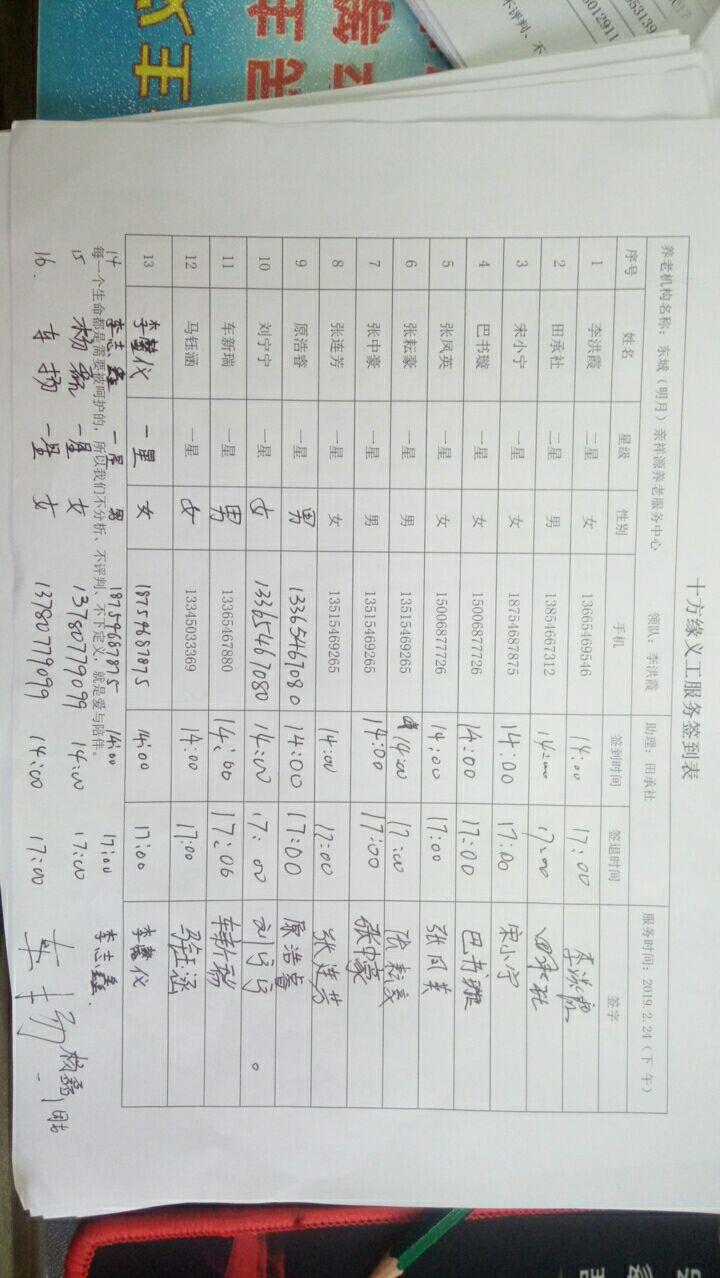 十方缘义工服务签到表
养老机构名称：东城（明月）亲祥源养老服务中心 领队：李洪霞 助理：田承社 服务时间：2019.2.24（下午）
序号 姓名 星级 性别 手机 签到时间 签退时间 签字
1 李洪霞 二星 女 13665469546 14:00 17:00 李洪霞
2 田承社 二星 男 13854667312 14:00 17:00 田承社
3 宋小宁 一星 女 18754687875 14:00 17:00 宋小宁
4 巴书璇 一星 女 15006877726 14:00 17:00 巴书璇
5 张凤英 一星 女 15006877726 14:00 17:00 张凤英
6 张耘豪 一星 男 13515469265 14:00 17:00 张耘豪
7 张中豪 一星 男 13515469265 14:00 17:00 张中豪
8 张连芳 一星 女 13515469265 14:00 17:00 张连芳
9 原浩睿 一星 男 13365467080 14:00 17:00 原浩睿
10 刘宁宁 一星 女 13365467080 14:00 17:00 刘宁宁
11 车新瑞 一星 男 13365467880 14:00 17:00 车新瑞
12 马钰涵 一星 女 13345033369 14:00 17:00 马钰涵
13 李馨仪 一星 女 18754687875 14:00 17:00 李馨仪
14 李志鑫 一星 男 18754687875 14:00 17:00 李志鑫
每一个生命都是需要被呵护的，所以我们不分析、不评判、不下定义，就是爱与陪伴。
15 杨磊 一星 女 13780779099 14:00 17:00 杨磊
16. 车扬 一星 女 13780779099 14:00 17:00 车扬